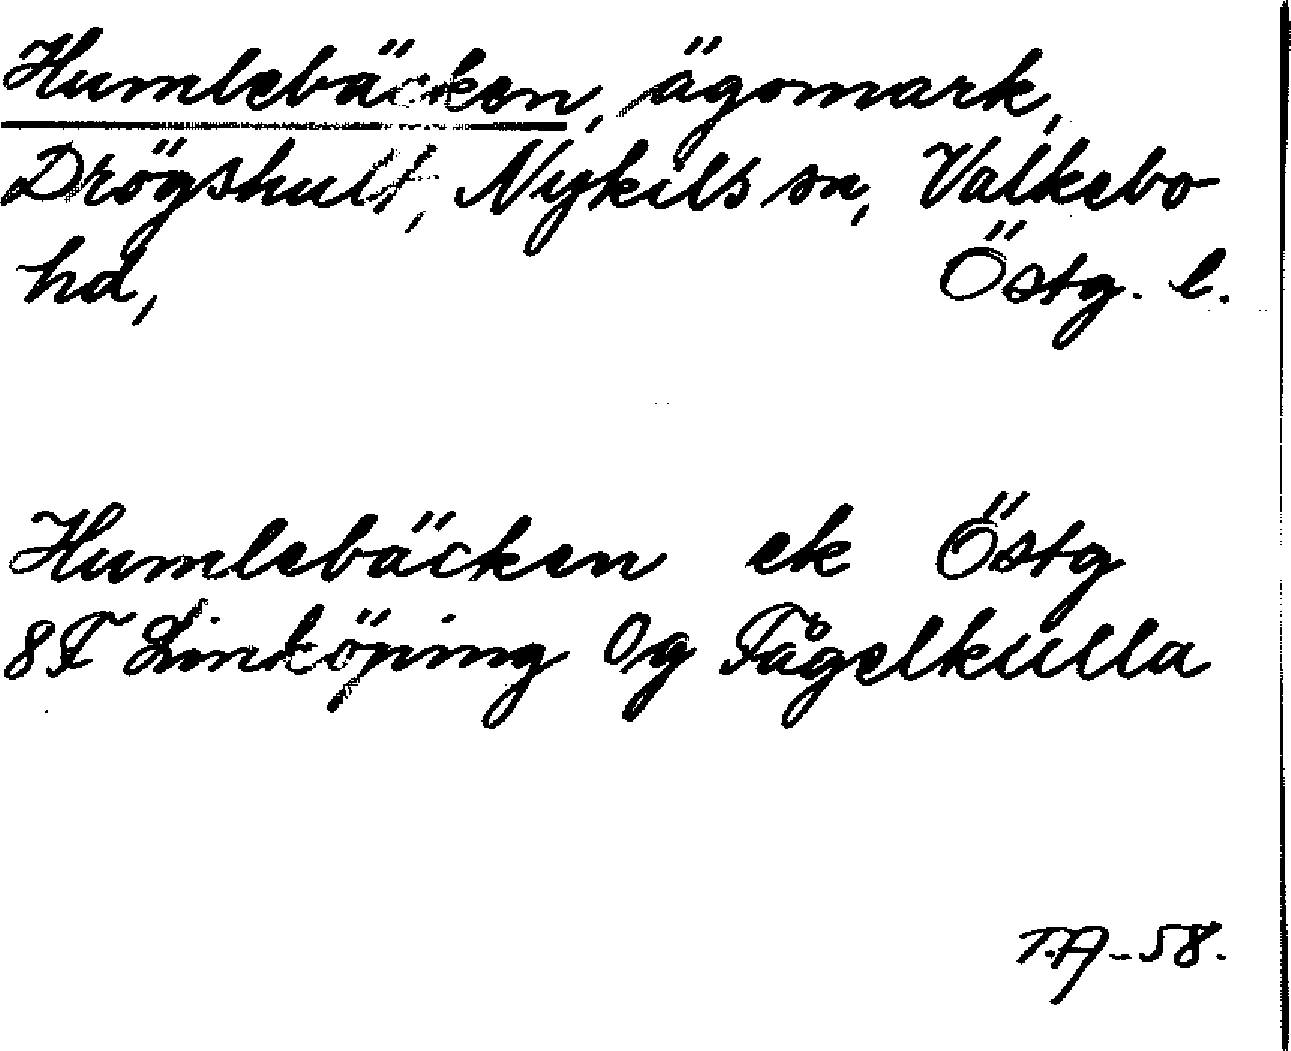 Humlebäcken, ägomark,
Drögshult, Nykils sn, Valkebo
hd, Östg. l.
Humlebäcken ek Östg
8F Linköping Og Fågelkulla
T.A-58.